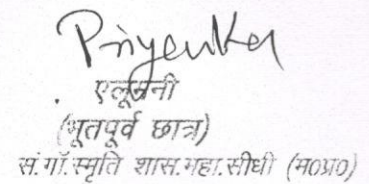 Priyanka
एलूमनी
(भूतपूर्व छात्र)
सं.गाँ.स्मृति शास.महा.सीधी (म०प्र०)